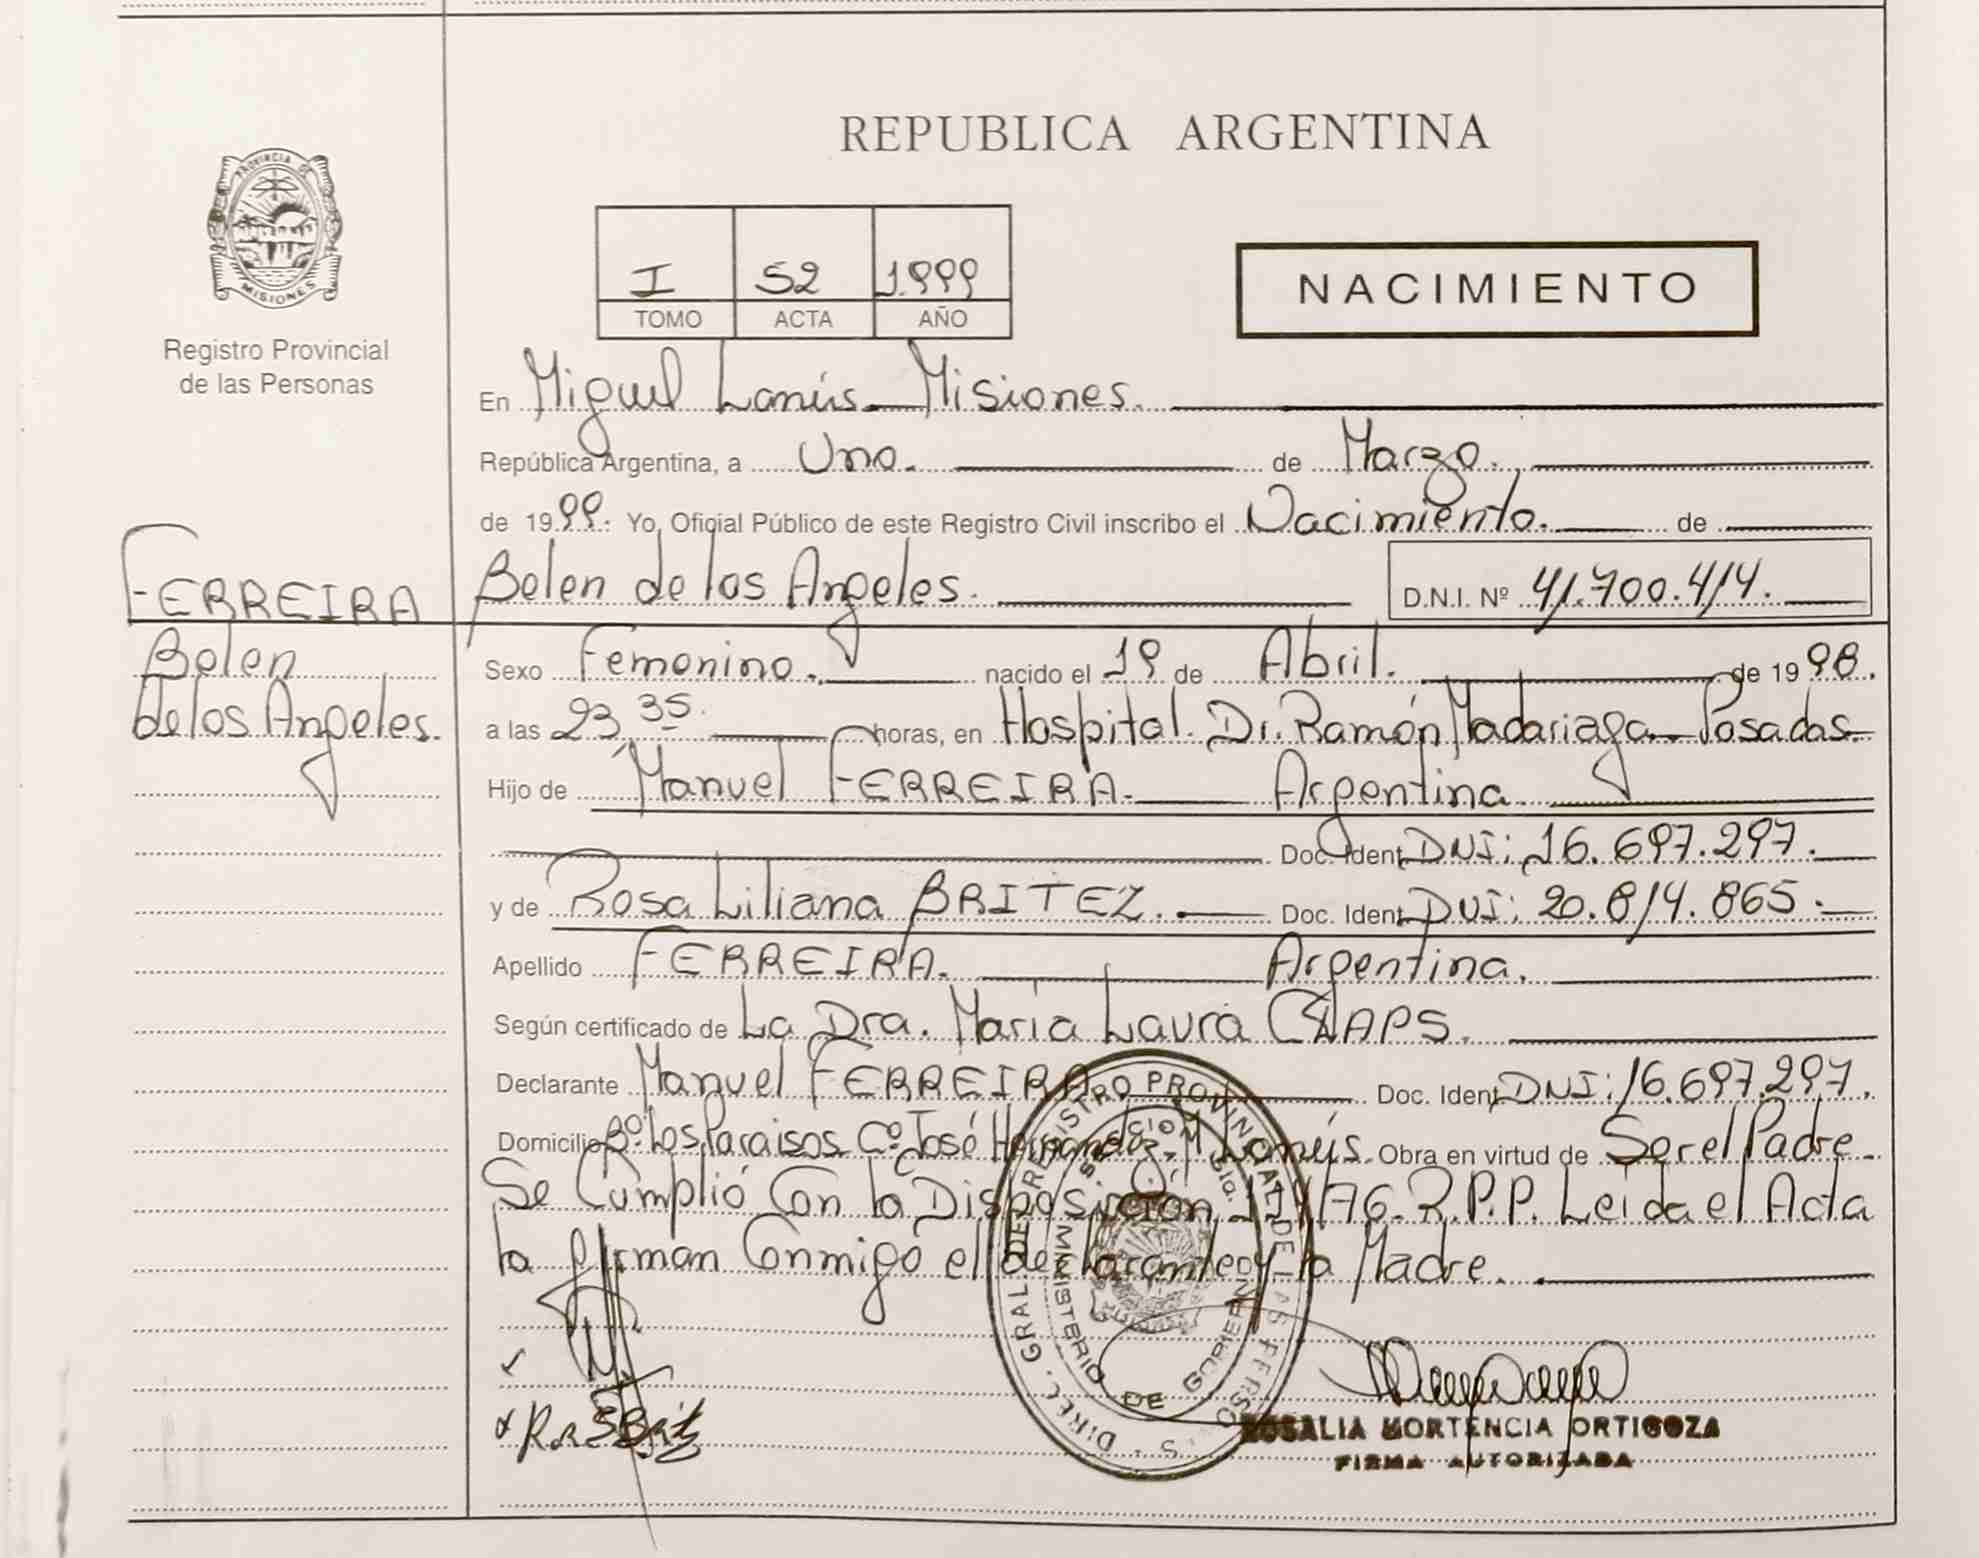 REPUBLICA ARGENTINA
PROVINCIA DE
MISIONES
Registro Provincial
de las Personas
I 52 1.999
TOMO ACTA AÑO
NACIMIENTO
En Miguel Lanús - Misiones.
República Argentina, a Uno. de Marzo.
de 1999. Yo, Oficial Público de este Registro Civil inscribo el Nacimiento. de
FERREIRA
Belen
de los Angeles.
Belen de los Angeles. D.N.I. Nº 41.700.414.
Sexo Femenino. nacido el 19 de Abril. de 1998.
a las 23,35. horas, en Hospital. Dr. Ramón Madariaga - Posadas.
Hijo de Manuel FERREIRA. Argentina
Doc. Ident. DNI: 16.697.297.
y de Rosa Liliana BRITEZ. Doc. Ident. DNI: 20.814.865.
Apellido FERREIRA. Argentina.
Según certificado de La Dra. Maria Laura
Declarante Manuel FERREIRA Doc. Ident. DNI: 16.697.297.
Domicilio Bº. Los Paraisos Cº. José Hernandez. M Lanús. Obra en virtud de Ser el Padre.
Se Cumplió Con la Disposición 119/76. R.P.P. Leida el Acta
la firman Conmigo el declarante y la Madre.
DIREC. GRAL. DEL REGISTRO PROVINCIAL DE LAS PERSONAS
MINISTERIO DE GOBIERNO
ROSALIA HORTENCIA ORTIGOZA
FIRMA AUTORIZADA